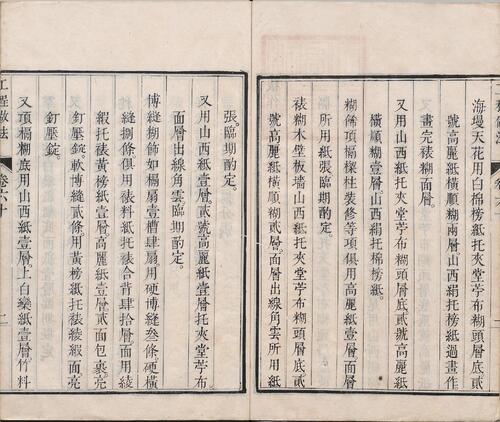 海墁天花用白棉榜紙托夾堂苧布糊頭層底貳
號高麗紙橫順糊兩層山西絹托榜紙過畫作
畫完裱糊面層
又用山西紙托夾堂苧布糊頭層底貳號高麗紙
橫順糊壹層山西絹托棉榜紙
糊飾項槅樑柱裝修等項俱用高麗紙壹層面層
所用紙張臨期酌定
裱糊木壁板墻山西紙托夾堂苧布糊頭層底貳
號高麗紙橫順糊貳層面層出線角雲所用紙
張臨期酌定
又用山西紙壹層貳號高麗紙壹層托夾堂苧布
面層出線角雲臨期酌定
博縫糊飾如槅扇壹槽肆扇用硬博縫叁條硬橫
縫捌條俱用裱料紙托裱合背肆拾層面用綾
緞托裱黃榜紙壹層高麗紙壹層貳面包裹亮
釘壓錠軟博縫貳條用黃榜紙托裱綾緞面亮
釘壓錠
又頂槅糊底用山西紙壹層上白欒紙壹層竹料
工程做法
卷六十
二